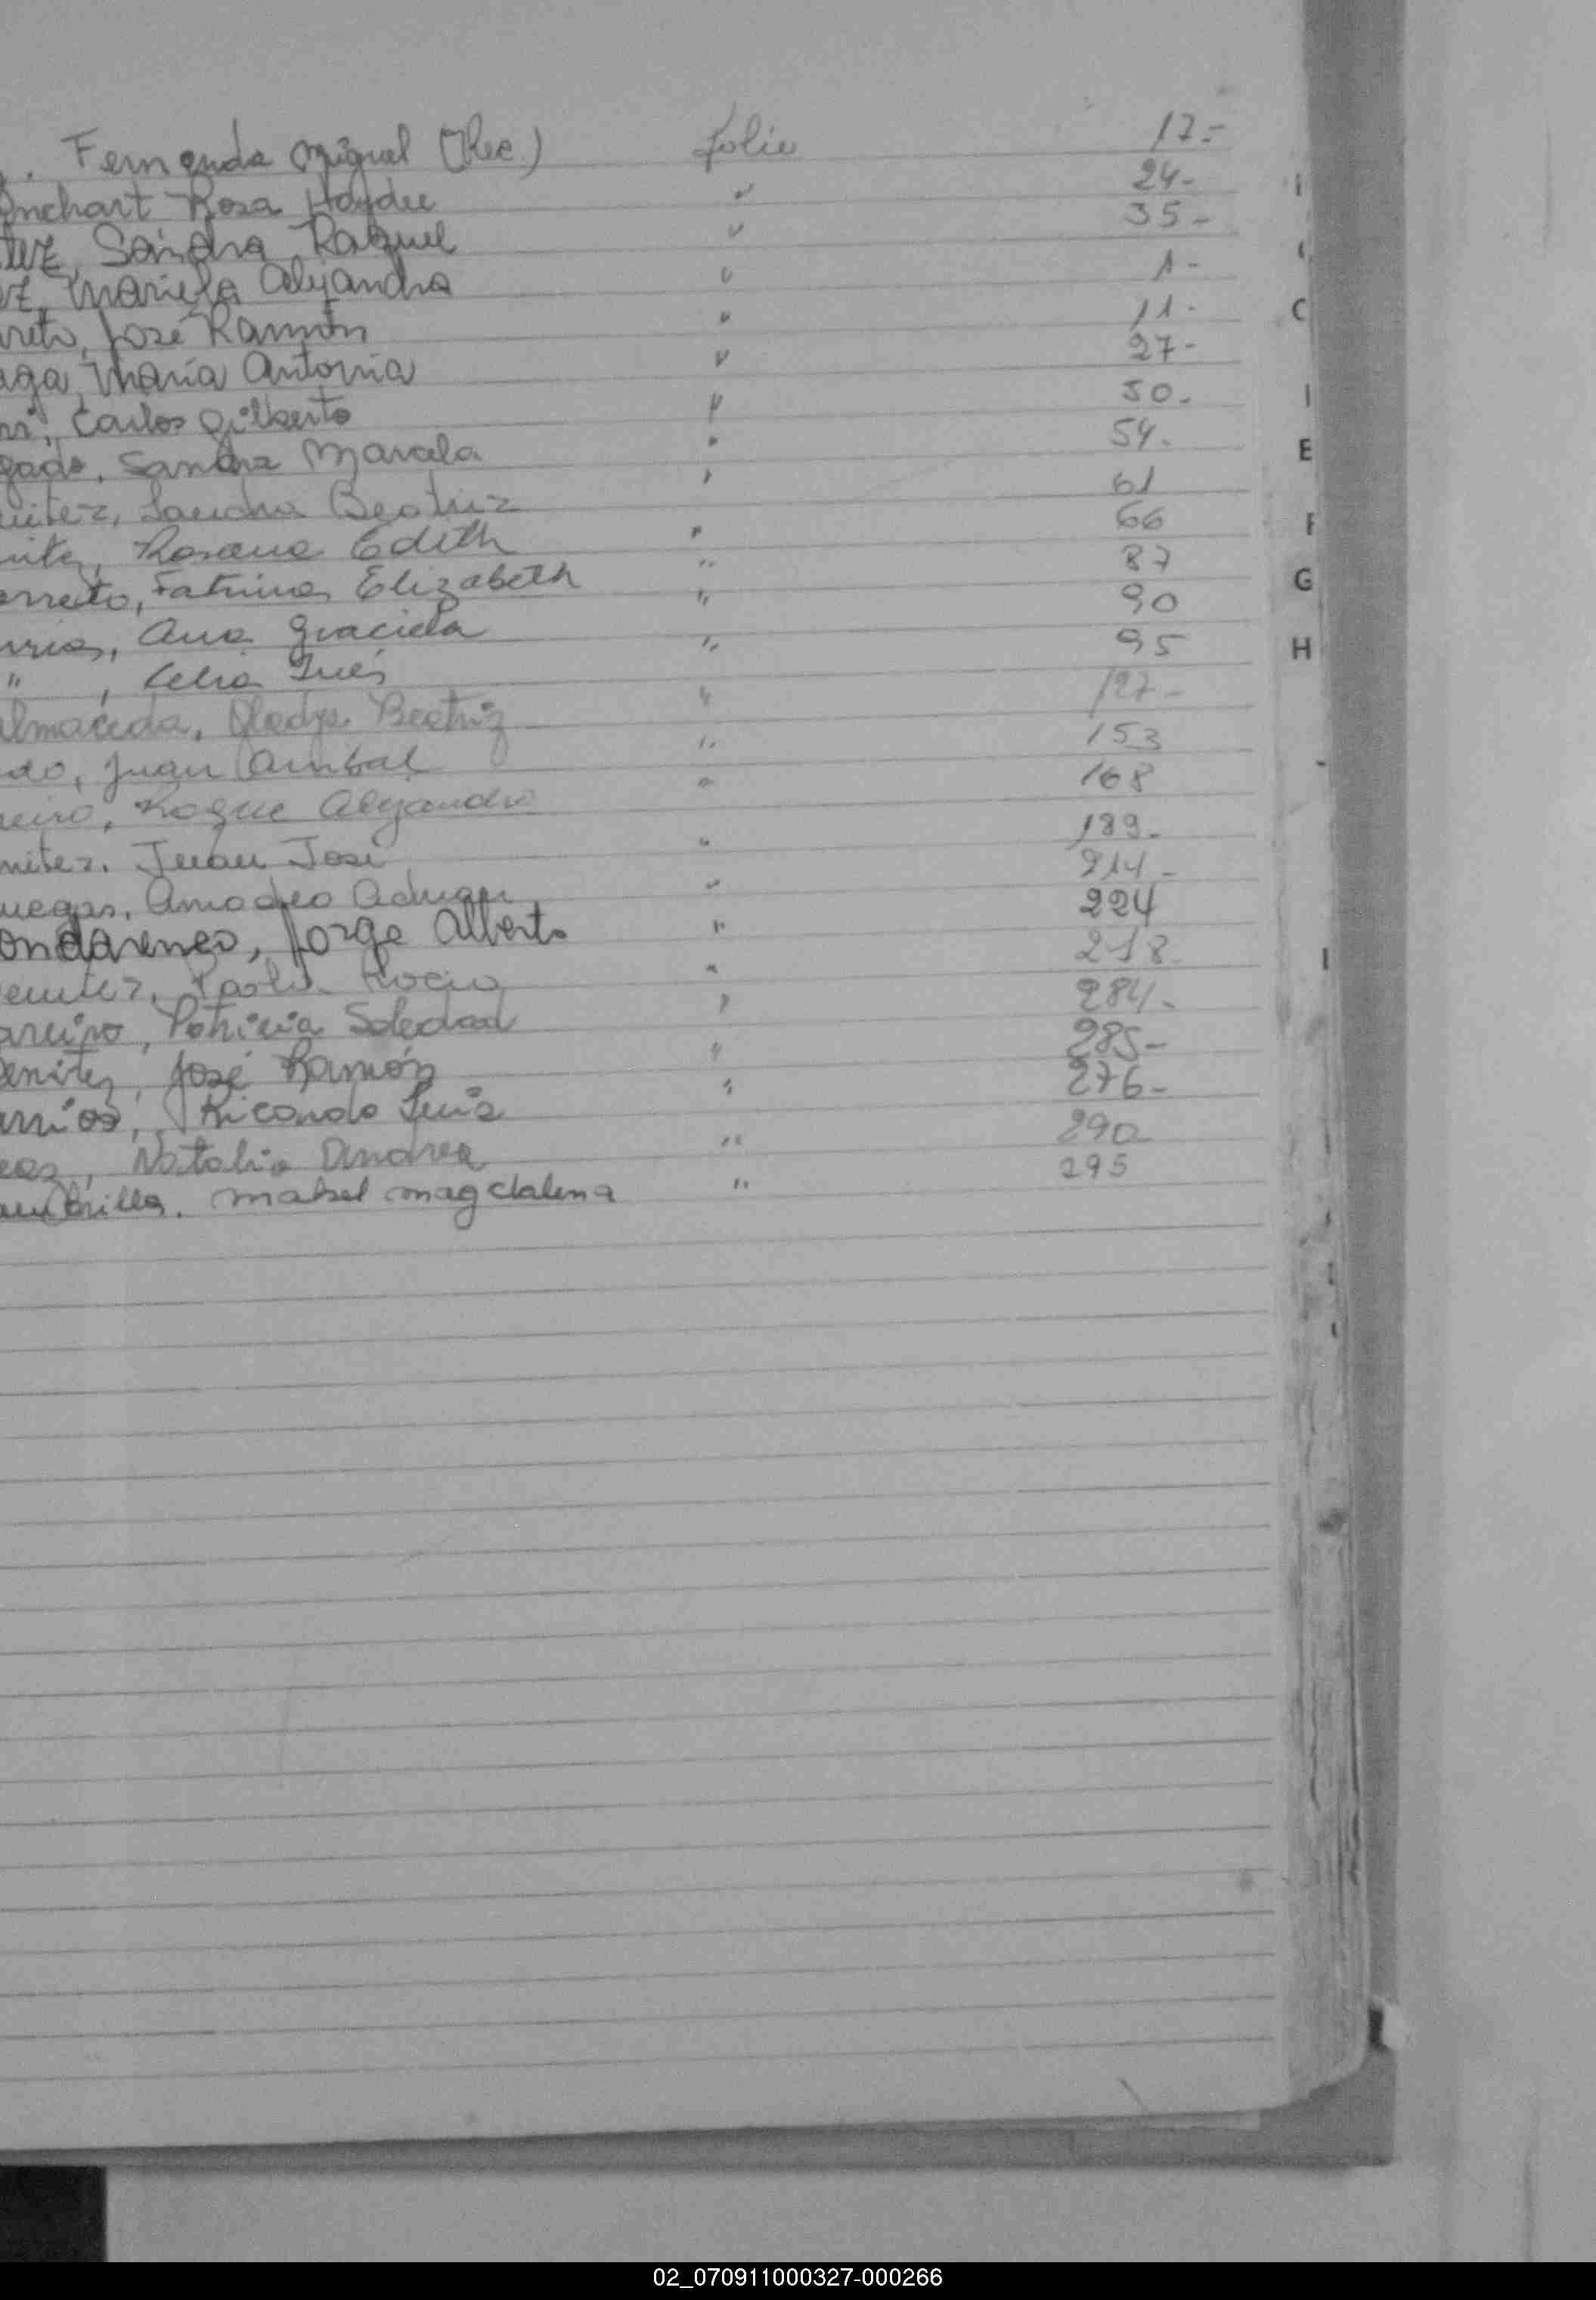 . Fernanda Miguel (Rec.) folio 17.-
Inchart Rosa Haydee " 24-
tez, Sandra Raquel " 35-
ez, Mariela Alejandra " 1-
rreto, José Ramón " 11-
aga, María Antonia " 27-
ri, Carlos Gilberto " 50.
gado, Sandra Marcela " 54.
nitez, Sandra Beatriz " 61
nitez, Rosana Edith " 66
arreto, Fatima Elizabeth " 87
arrios, Ana Graciela " 90
" , Celia Inés " 95
almaceda, Gladys Beatriz " 127-
do, Juan Anibal " 153
reiro, Roque Alejandro " 168
nitez. Juan José " 189-
negas, Amadeo Adrian " 214-
ondarenco, Jorge Alberto " 224
enitez, Paola Rocio " 218-
areiro, Patricia Soledad " 284-
Benitez, José Ramón " 285-
arrios, Ricardo Luis " 276-
, Natalia Andrea " 290
brilla, Mabel Magdalena " 295
C
E
F
G
H
02_070911000327-000266